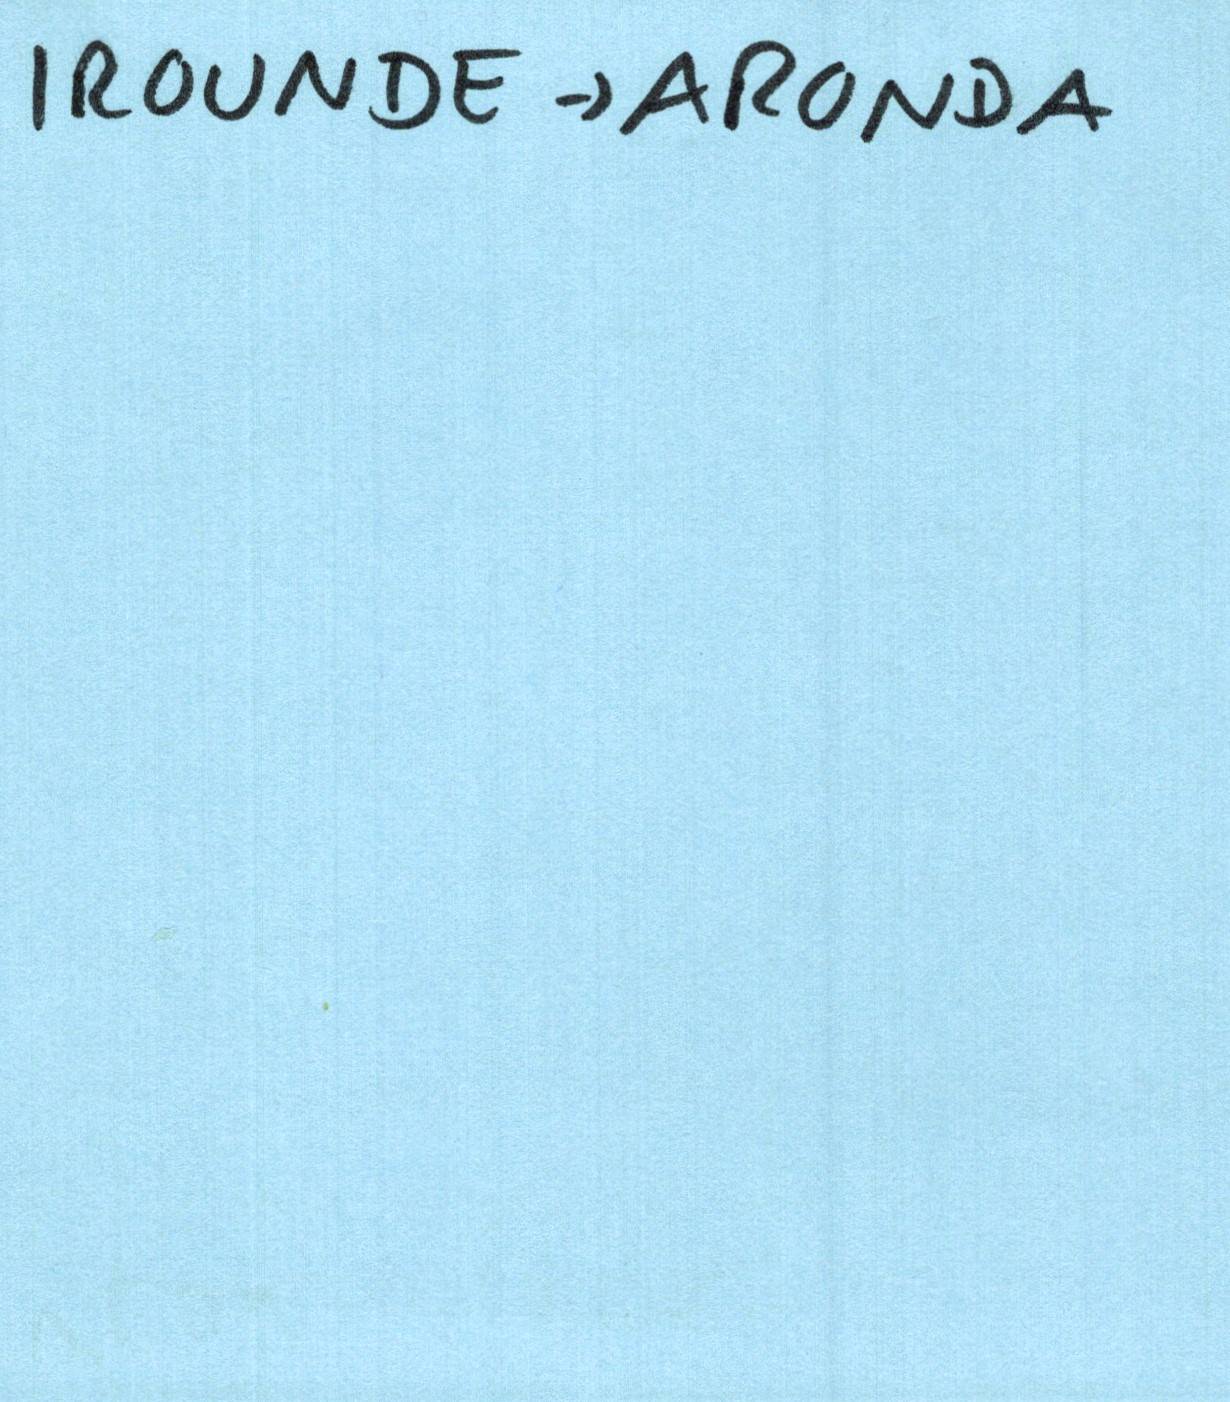 IROUNDE → ARONDA